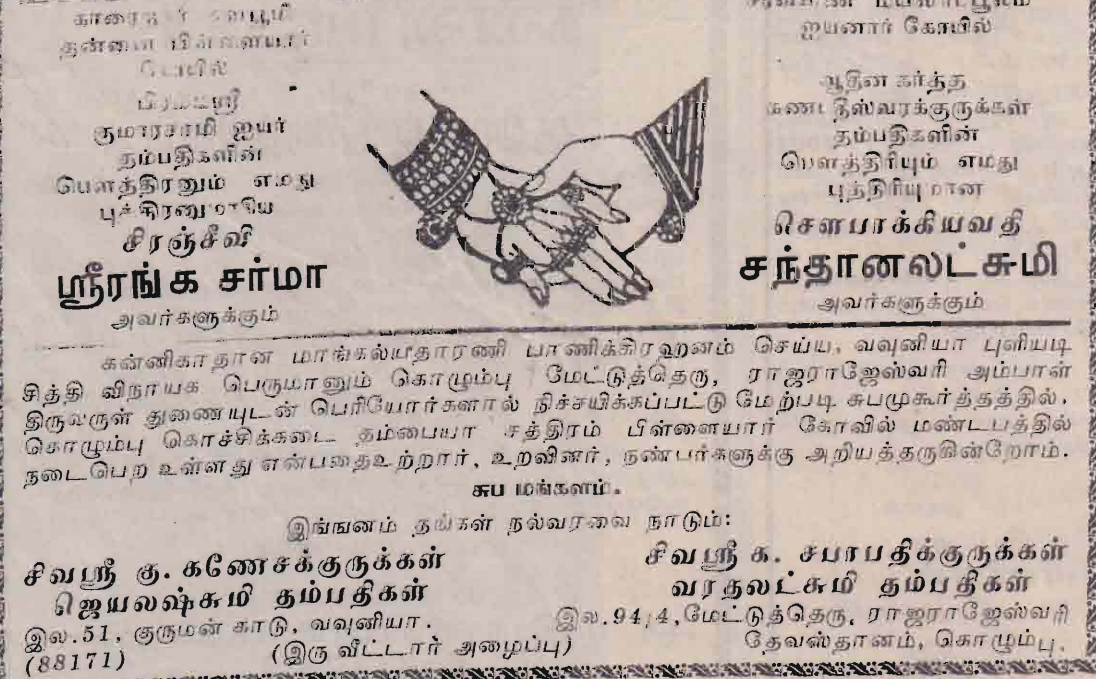 தன்னை பிள்ளையார்
கோயில்
பிரம்மஸ்ரீ
குமாரசாமி ஐயர்
தம்பதிகளின்
பௌத்திரனும் எமது
புத்திரனுமாகிய
சிரஞ்சீவி
ஸ்ரீரங்க சர்மா
அவர்களுக்கும்
ஐயனார் கோயில்
ஆதீன கர்த்தா
தம்பதிகளின்
பௌத்திரியும் எமது
புத்திரியுமான
சௌபாக்கியவதி
சந்தானலட்சுமி
அவர்களுக்கும்
கன்னிகாதான மாங்கல்யதாரணி பாணிக்கிரஹனம் செய்ய, வவுனியா புளியடி
சித்தி விநாயக பெருமானும் கொழும்பு மேட்டுத்தெரு, ராஜராஜேஸ்வரி அம்பாள்
திருவருள் துணையுடன் பெரியோர்களால் நிச்சயிக்கப்பட்டு மேற்படி சுபமுகூர்த்தத்தில்,
கொழும்பு கொச்சிக்கடை தம்பையா சத்திரம் பிள்ளையார் கோவில் மண்டபத்தில்
நடைபெற உள்ளது என்பதைஉற்றார், உறவினர், நண்பர்களுக்கு அறியத்தருகின்றோம்.
சுப மங்களம்.
இங்ஙனம் தங்கள் நல்வரவை நாடும்:
சிவஸ்ரீ கு. கணேசக்குருக்கள்
ஜெயலஷ்சுமி தம்பதிகள்
இல.51, குருமன் காடு, வவுனியா.
(88171) (இரு வீட்டார் அழைப்பு)
சிவஸ்ரீ க. சபாபதிக்குருக்கள்
வரதலட்சுமி தம்பதிகள்
இல.94/4,மேட்டுத்தெரு, ராஜராஜேஸ்வரி
தேவஸ்தானம், கொழும்பு.